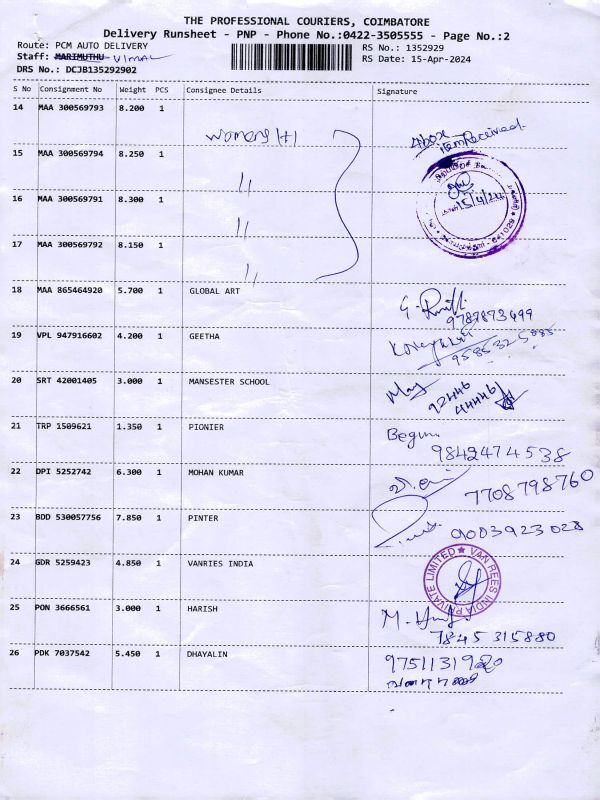 THE PROFESSIONAL COURIERS, COIMBATORE
Delivery Runsheet - PNP - Phone No.:0422-3505555 - Page No.:2
Route: PCM AUTO DELIVERY RS No.: 1352929
Staff: MARIMUTHU VIMAL RS Date: 15-Apr-2024
DRS No.: DCJB135292902
S No Consignment No Weight PCS Consignee Details Signature
14 MAA 300569793 8.200 1
15 MAA 300569794 8.250 1
16 MAA 300569791 8.300 1
17 MAA 300569792 8.150 1
Above
item Received
15/4/24
18 MAA 865464920 5.700 1 GLOBAL ART
9787873499
19 VPL 947916602 4.200 1 GEETHA
20 SRT 42001405 3.000 1 MANSESTER SCHOOL
May 92446
44446
21 TRP 1509621 1.350 1 PIONIER Begum
9842474538
22 DPI 5252742 6.300 1 MOHAN KUMAR
7708798760
23 BDD 530057756 7.850 1 PINTER
9003923028
24 GDR 5259423 4.850 1 VANRIES INDIA
VAN REES INDIA PRIVATE LIMITED
25 PON 3666561 3.000 1 HARISH
7845 315880
26 PDK 7037542 5.450 1 DHAYALIN